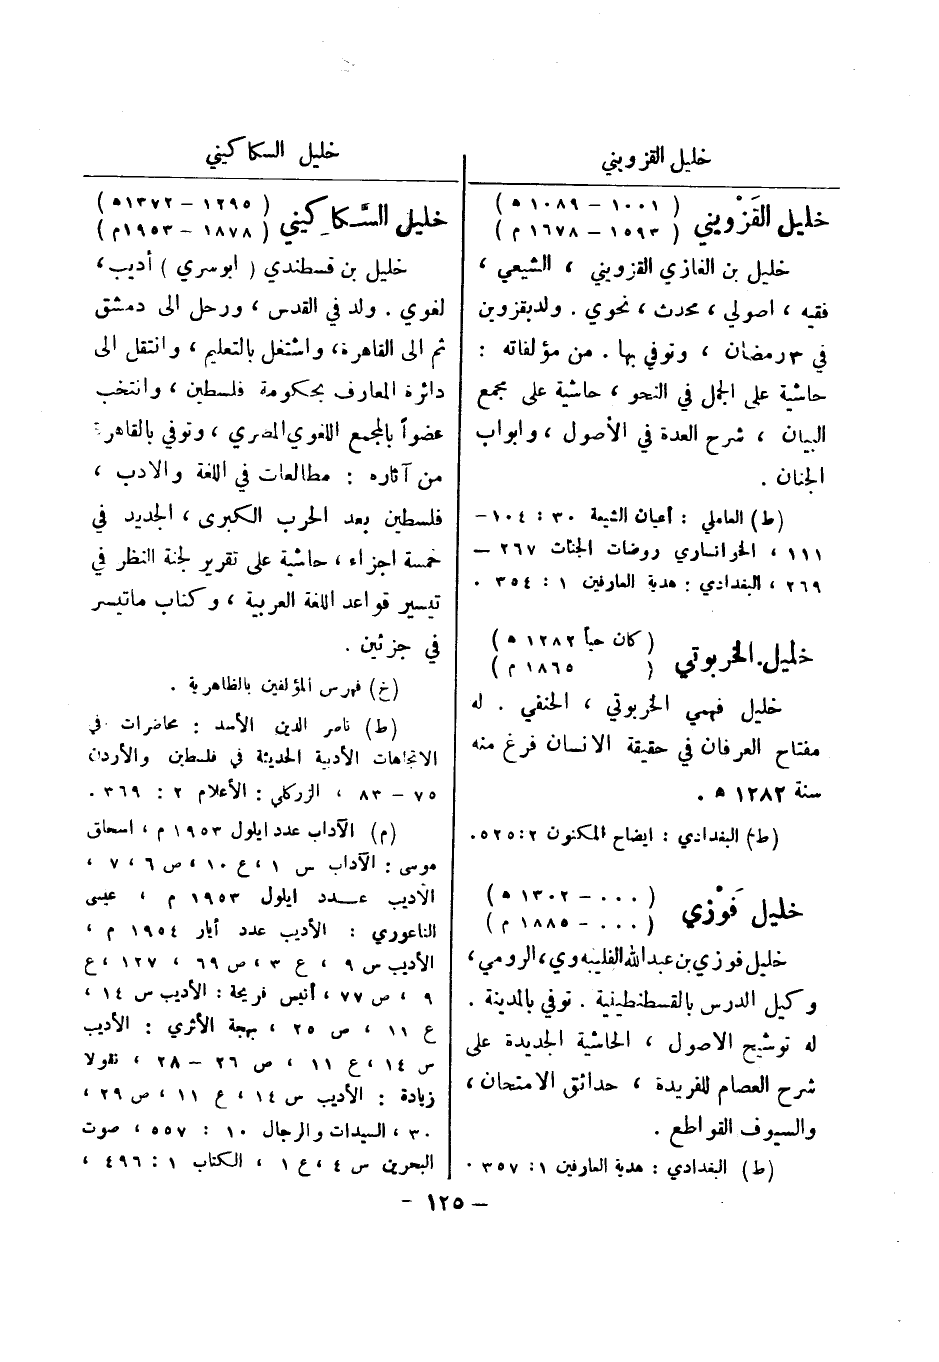 خليل القزويني
خليل القَزْويني (١٠٠١ – ١٠٨٩ ه)
(١٥٩٣ – ١٦٧٨ م)
خليل بن الغازي القزويني ، الشيعي ،
فقيه ، اصولي ، محدث ، نحوي . ولد بقزوين
في ٣ رمضان ، وتوفي بها . من مؤلفاته :
حاشية على الجمل في النحو ، حاشية على مجمع
البيان ، شرح العدة في الأصول ، وابواب
الجنان .
(ط) العاملي : أعيان الشيعة ٣٠ : ١٠٤ –
١١١ ، الخوانساري روضات الجنات ٢٦٧ –
٢٦٩ ، البغدادي : هدية العارفين ١ : ٣٥٤ .
خليل الخربوتي (كان حياً ١٢٨٢ ه)
( ١٨٦٥ م)
خليل فهمي الخربوتي ، الحنفي . له
مفتاح العرفان في حقيقة الانسان فرغ منه
سنة ١٢٨٢ ه .
(ط) البغدادي : ايضاح المكنون ٢ : ٥٢٥ .
خليل فَوْزي (٠٠٠ – ١٣٠٢ ه)
(٠٠٠ – ١٨٨٥ م)
خليل فوزي بن عبدالله الفليبه وي ، الرومي ،
وكيل الدرس بالقسطنطينية . توفي بالمدينة .
له توشيح الاصول ، الحاشية الجديدة على
شرح العصام للفريدة ، حدائق الامتحان ،
والسيوف القواطع .
(ط) البغدادي : هدية العارفين ١ : ٣٥٧ .
خليل السكاكيني
خليل السَّكاكيني (١٢٩٥ – ١٣٧٢ ه)
(١٨٧٨ – ١٩٥٣ م)
خليل بن قسطندي (ابو سري) أديب ،
لغوي . ولد في القدس ، ورحل الى دمشق
ثم الى القاهرة ، واشتغل بالتعليم ، وانتقل الى
دائرة المعارف بحكومة فلسطين ، وانتخب
عضواً بالمجمع اللغوي المصري ، وتوفي بالقاهرة
من آثاره : مطالعات في اللغة والادب ،
فلسطين بعد الحرب الكبرى ، الجديد في
خمسة اجزاء ، حاشية على تقرير لجنة النظر في
تيسير قواعد اللغة العربية ، وكتاب ماتيسر
في جزئين .
(خ) فهرس المؤلفين بالظاهرية .
(ط) ناصر الدين الأسد : محاضرات في
الاتجاهات الأدبية الحديثة في فلسطين والأردن
٧٥ – ٨٣ ، الزركلي : الأعلام ٢ : ٣٦٩ .
(م) الآداب عدد ايلول ١٩٥٣ م ، اسحاق
موسى : الآداب س ١ ، ع ١٠ ، ص ٦ ، ٧ ،
الأديب عدد ايلول ١٩٥٣ م ، عيسى
الناعوري : الأديب عدد أيار ١٩٥٤ م ،
الأديب س ٩ ، ع ٣ ، ص ٦٩ ، ١٢٧ ، ع
٩ ، ص ٧٧ ، أنيس فريحة : الأديب س ١٤ ،
ع ١١ ، ص ٢٥ ، بهجة الأثري : الأديب
س ١٤ ، ع ١١ ، ص ٢٦ – ٢٨ ، نقولا
زيادة : الأديب س ١٤ ، ع ١١ ، ص ٢٩ ،
٣٠ ، السيدات والرجال ١٠ : ٥٥٧ ، صوت
البحرين س ٤ ، ع ١ ، الكتاب ١ : ٤٩٦ ،
– ١٢٥ –